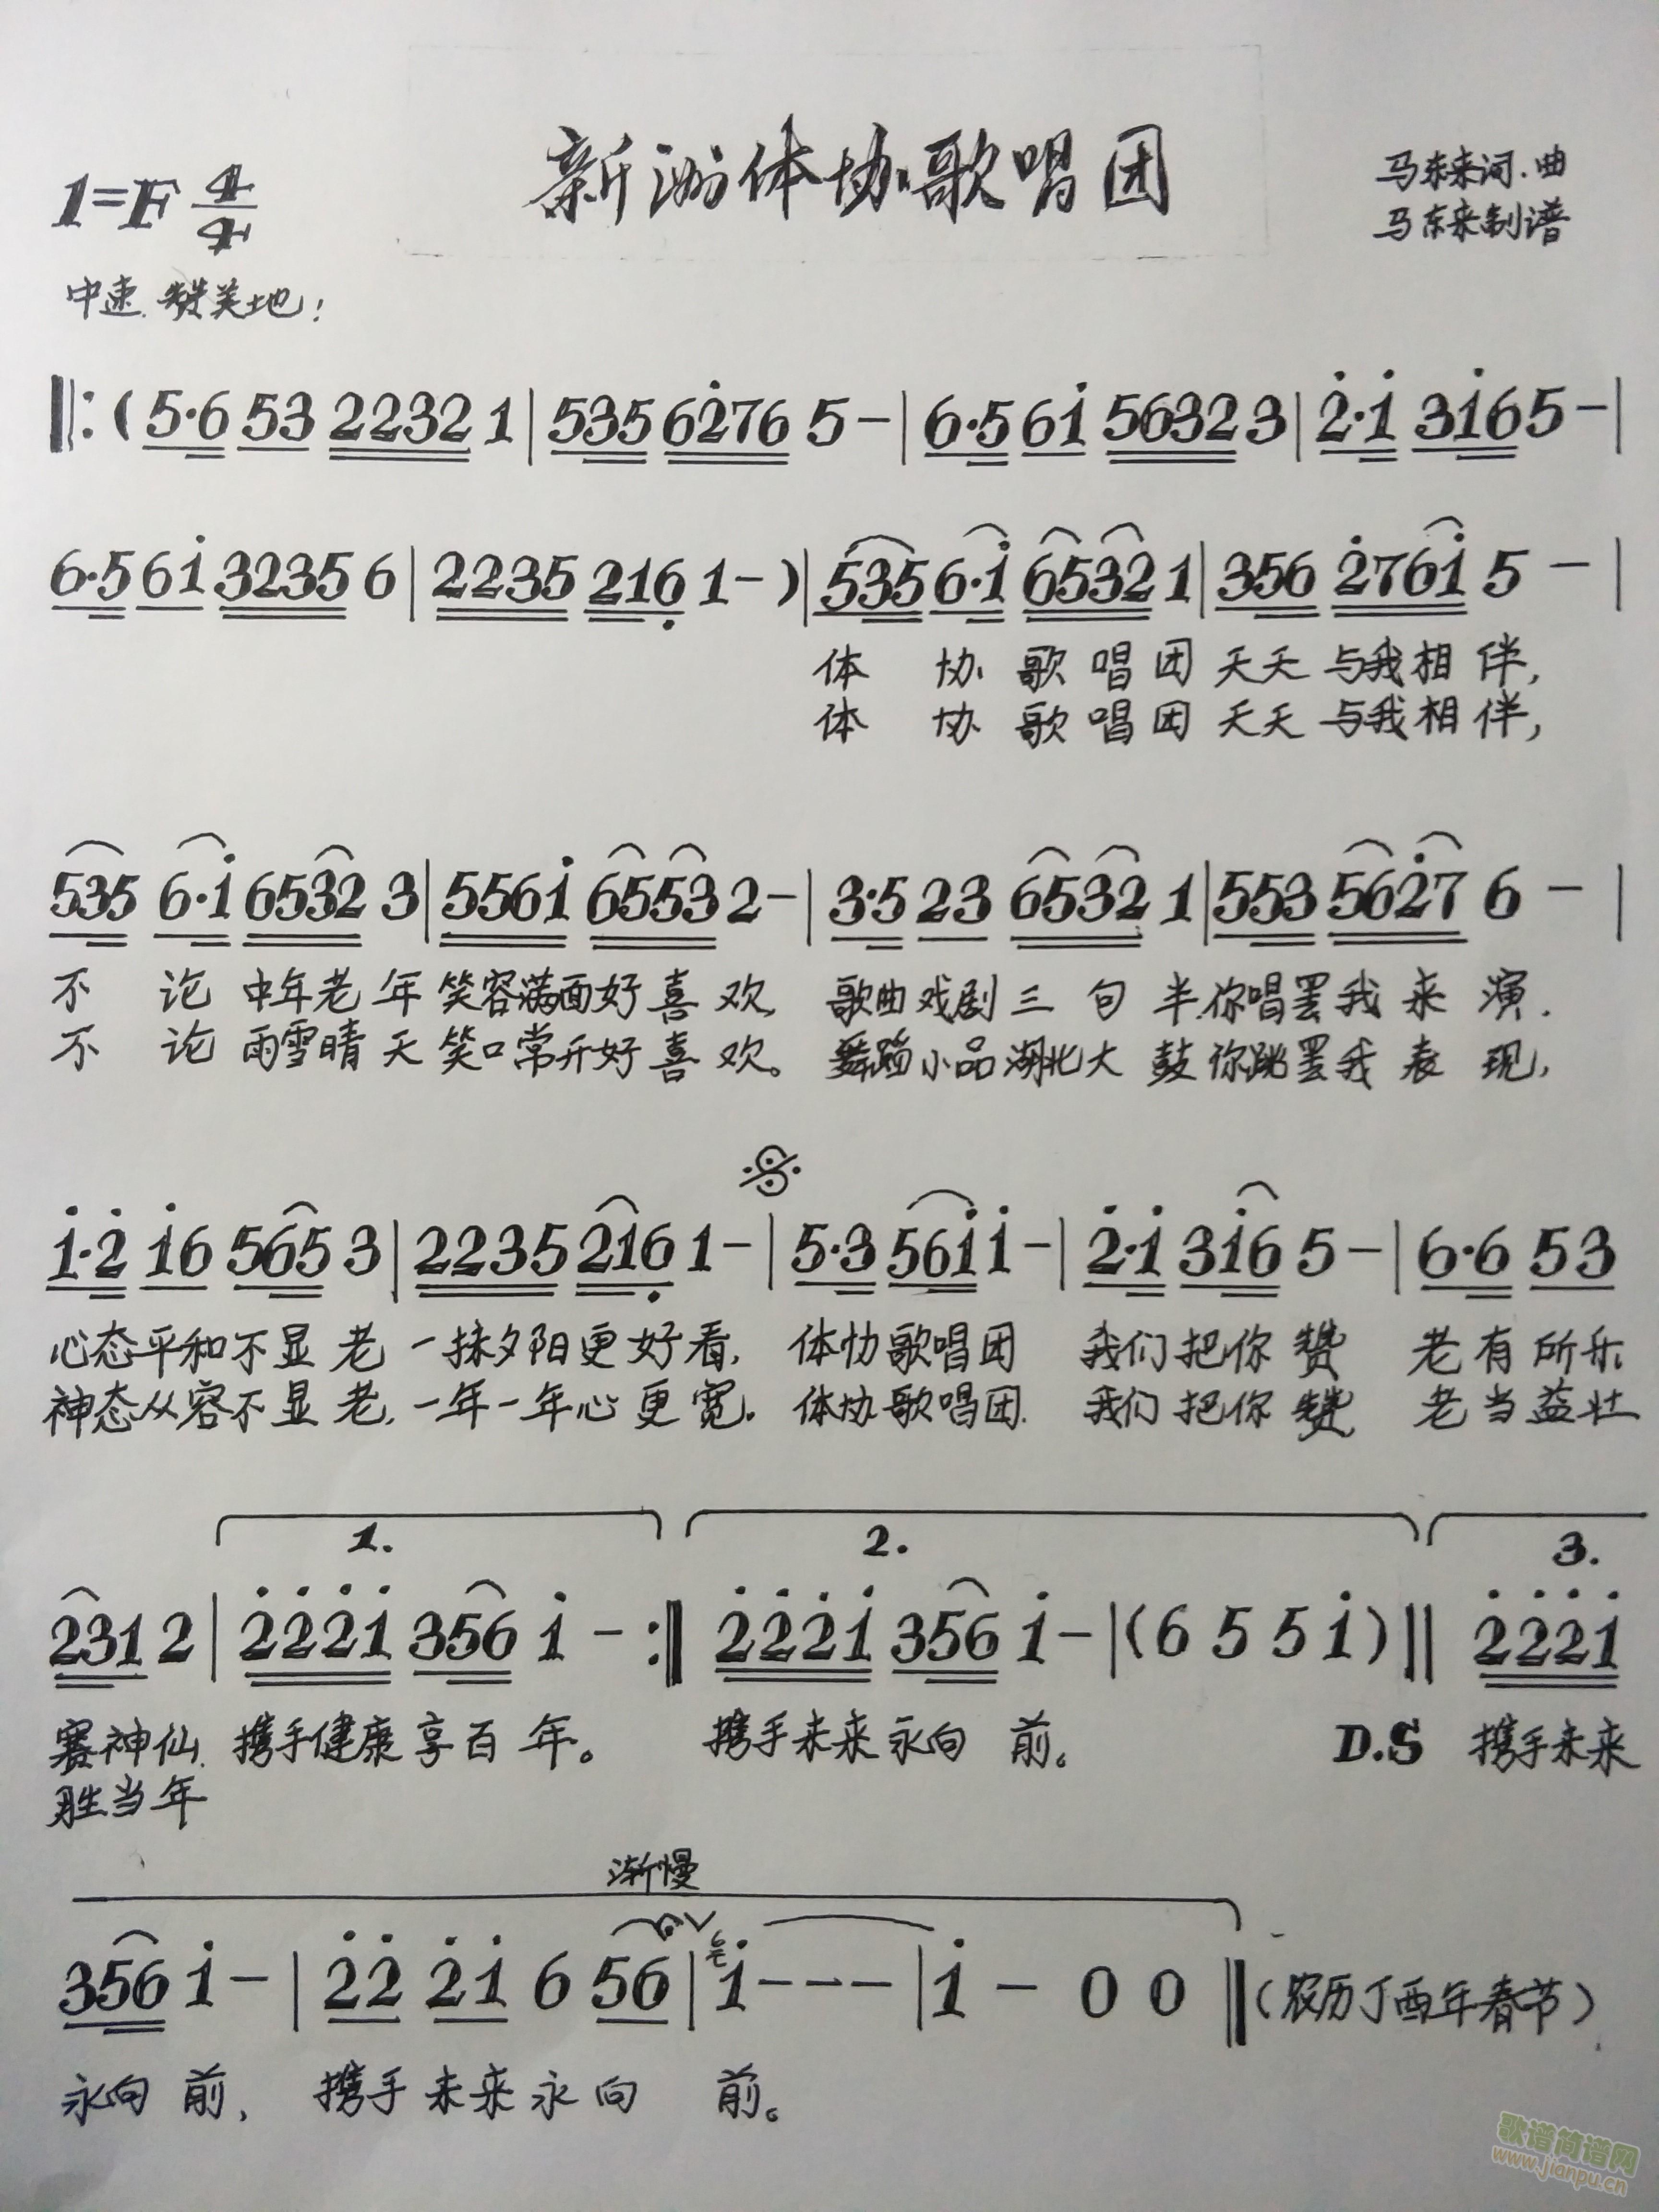 新洲体协歌唱团
马东来词.曲
1=F 4/4
马东来制谱
中速.赞美地!
‖:(5·6 53 2232 1|535 62̇76 5-|6·5 61̇ 5632 3|2̇·1̇ 31̇6 5-|
6·5 61̇ 3235 6|2235 216̣ 1-)|535 6·1̇ 6532 1|356 2̇761̇ 5-|
体 协 歌 唱 团 天天 与我相 伴,
体 协 歌 唱 团 天天 与我相 伴,
535 6·1̇ 6532 3|5561̇ 6553 2-|3·5 23 6532 1|553 562̇7 6-|
不 论 中年老 年 笑容满面好 喜 欢, 歌曲戏剧 三 句 半.你唱罢我 来 演.
不 论 雨雪晴 天 笑口常开好 喜 欢。 舞蹈小品湖北大 鼓 你跳罢我 表 现,
1̇·2̇ 1̇6 565 3|2235 216̣ 1-|5·3 561̇ 1̇-|2̇·1̇ 31̇6 5-|6·6 53
心态平和不显 老 一抹夕阳更 好 看, 体协歌唱团 我们把你 赞 老 有 所乐
神态从容不显 老, 一年一年心 更 宽。 体协歌唱团. 我们把你 赞, 老 当 益壮
1. 2. 3.
231 2|2̇2̇2̇1̇ 356 1̇-:‖2̇2̇2̇1̇ 356 1̇-|(6 5 5 1̇)‖2̇2̇2̇1̇
赛神仙. 携手健康 享百 年。 携手未来 永向 前。 D.S 携手未来
胜当年
渐慢
356 1̇-|2̇2̇ 2̇1̇ 6 56|1̇---|1̇-0 0‖(农历丁酉年春节)
永向 前, 携手 未来 永 向 前。
歌谱简谱网
www.jianpu.cn